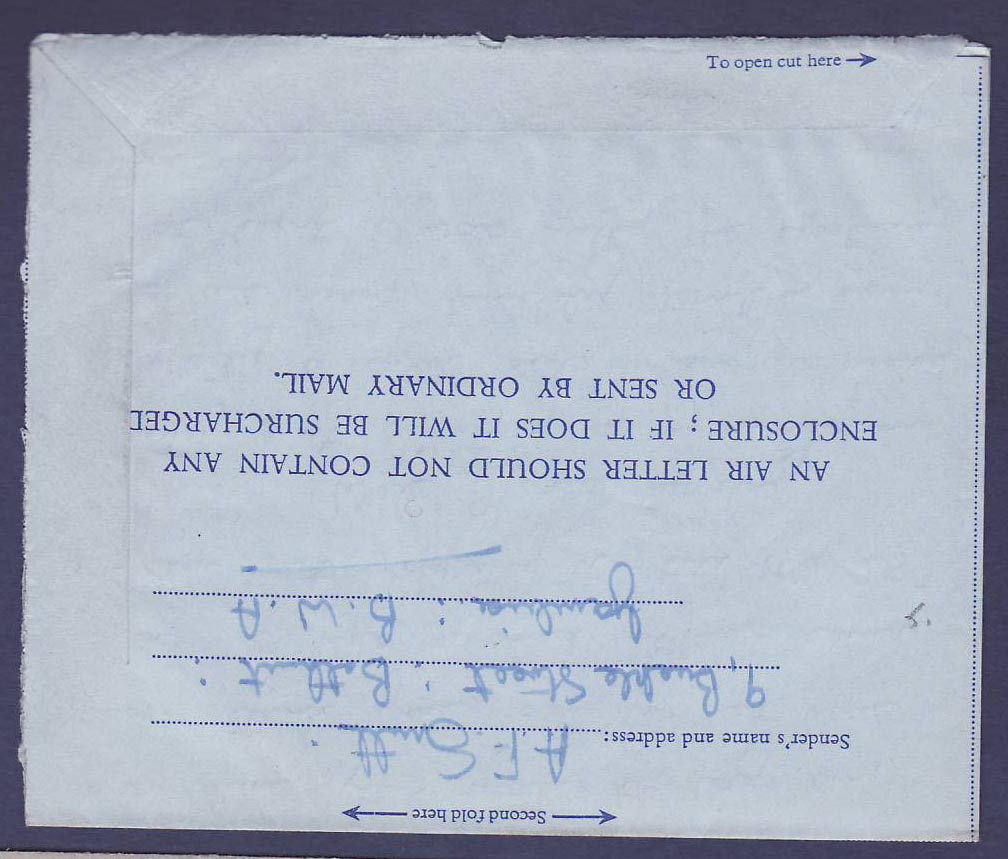 To open cut here
Second fold here
Sender's name and address: A. F. Smith.
9, Buckle Street: Bathurst:
Gambia: B. W. A
AN AIR LETTER SHOULD NOT CONTAIN ANY
ENCLOSURE; IF IT DOES IT WILL BE SURCHARGED
OR SENT BY ORDINARY MAIL.